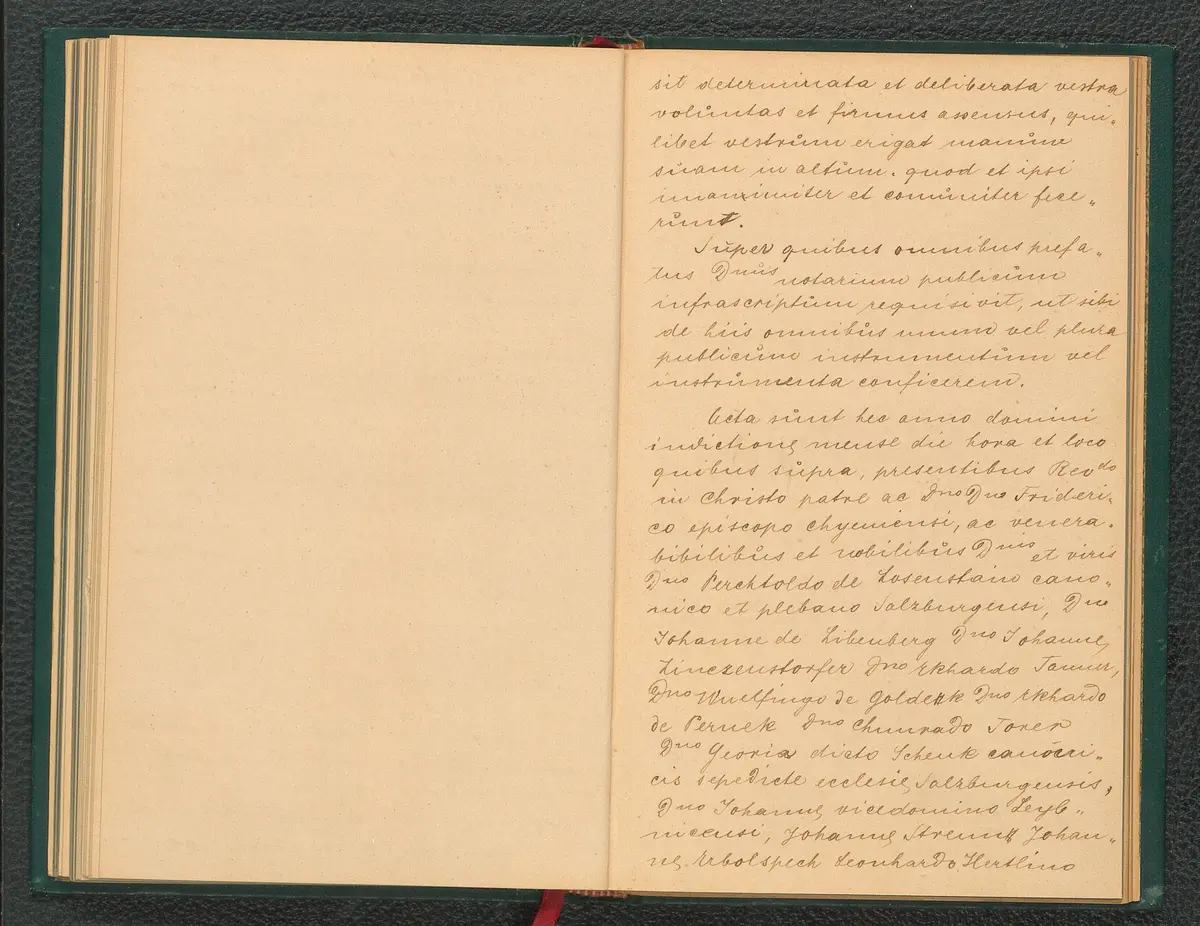 sit determinata et deliberata vestra
volůntas et firmus assensus, qui„
libet vestrům erigat manům
sůam in altům. quod et ipsi
unanimiter et comůniter fece„
růnt.
Sůper quibus omnibus prefa„
tus Dnůs notarium publicům
infrascriptům requisivit, ut sibi
de hiis omnibůs unum vel plura
publicům instrumentům vel
instrůmenta conficerem.
Acta sůnt hec anno domini
indictione mense die hora et loco
quibus sůpra, presentibus Revdo
in Christo patre ac Dno Dno Frideri„
co episcopo Chyemensi, ac venera„
bibilibůs et nobilibůs Dnis et viris
Dno Perchtoldo de Losenstain cano„
nico et plebano Salzburgensi, Dno
Johanne de Libenberg Dno Johanne
Linczenstorfer Dno Ekhardo Tanner,
Dno Wuelfingo de Goldekk Dno Ekhardo
de Pernek Dno Chunrado Torer
Dno Georia dicto Schenk canoni„
cis sepedicte ecclesie Salzburgensis,
Dno Johanne vicedomino Leyb„
nicensi, Johanne Streun Johan„
ne Erbolspech Leonhardo Hertlino